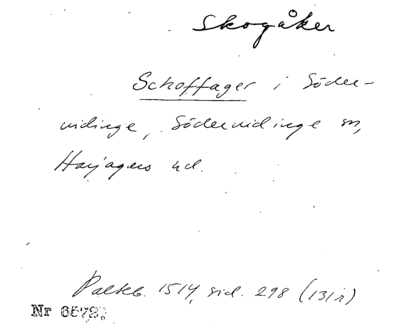 Skogåker
Schoffager i Söder-
vidinge, Södervidinge sn,
Harjagers hd.
Palteb. 1514, sid. 298 (131r)
Nr 6578.